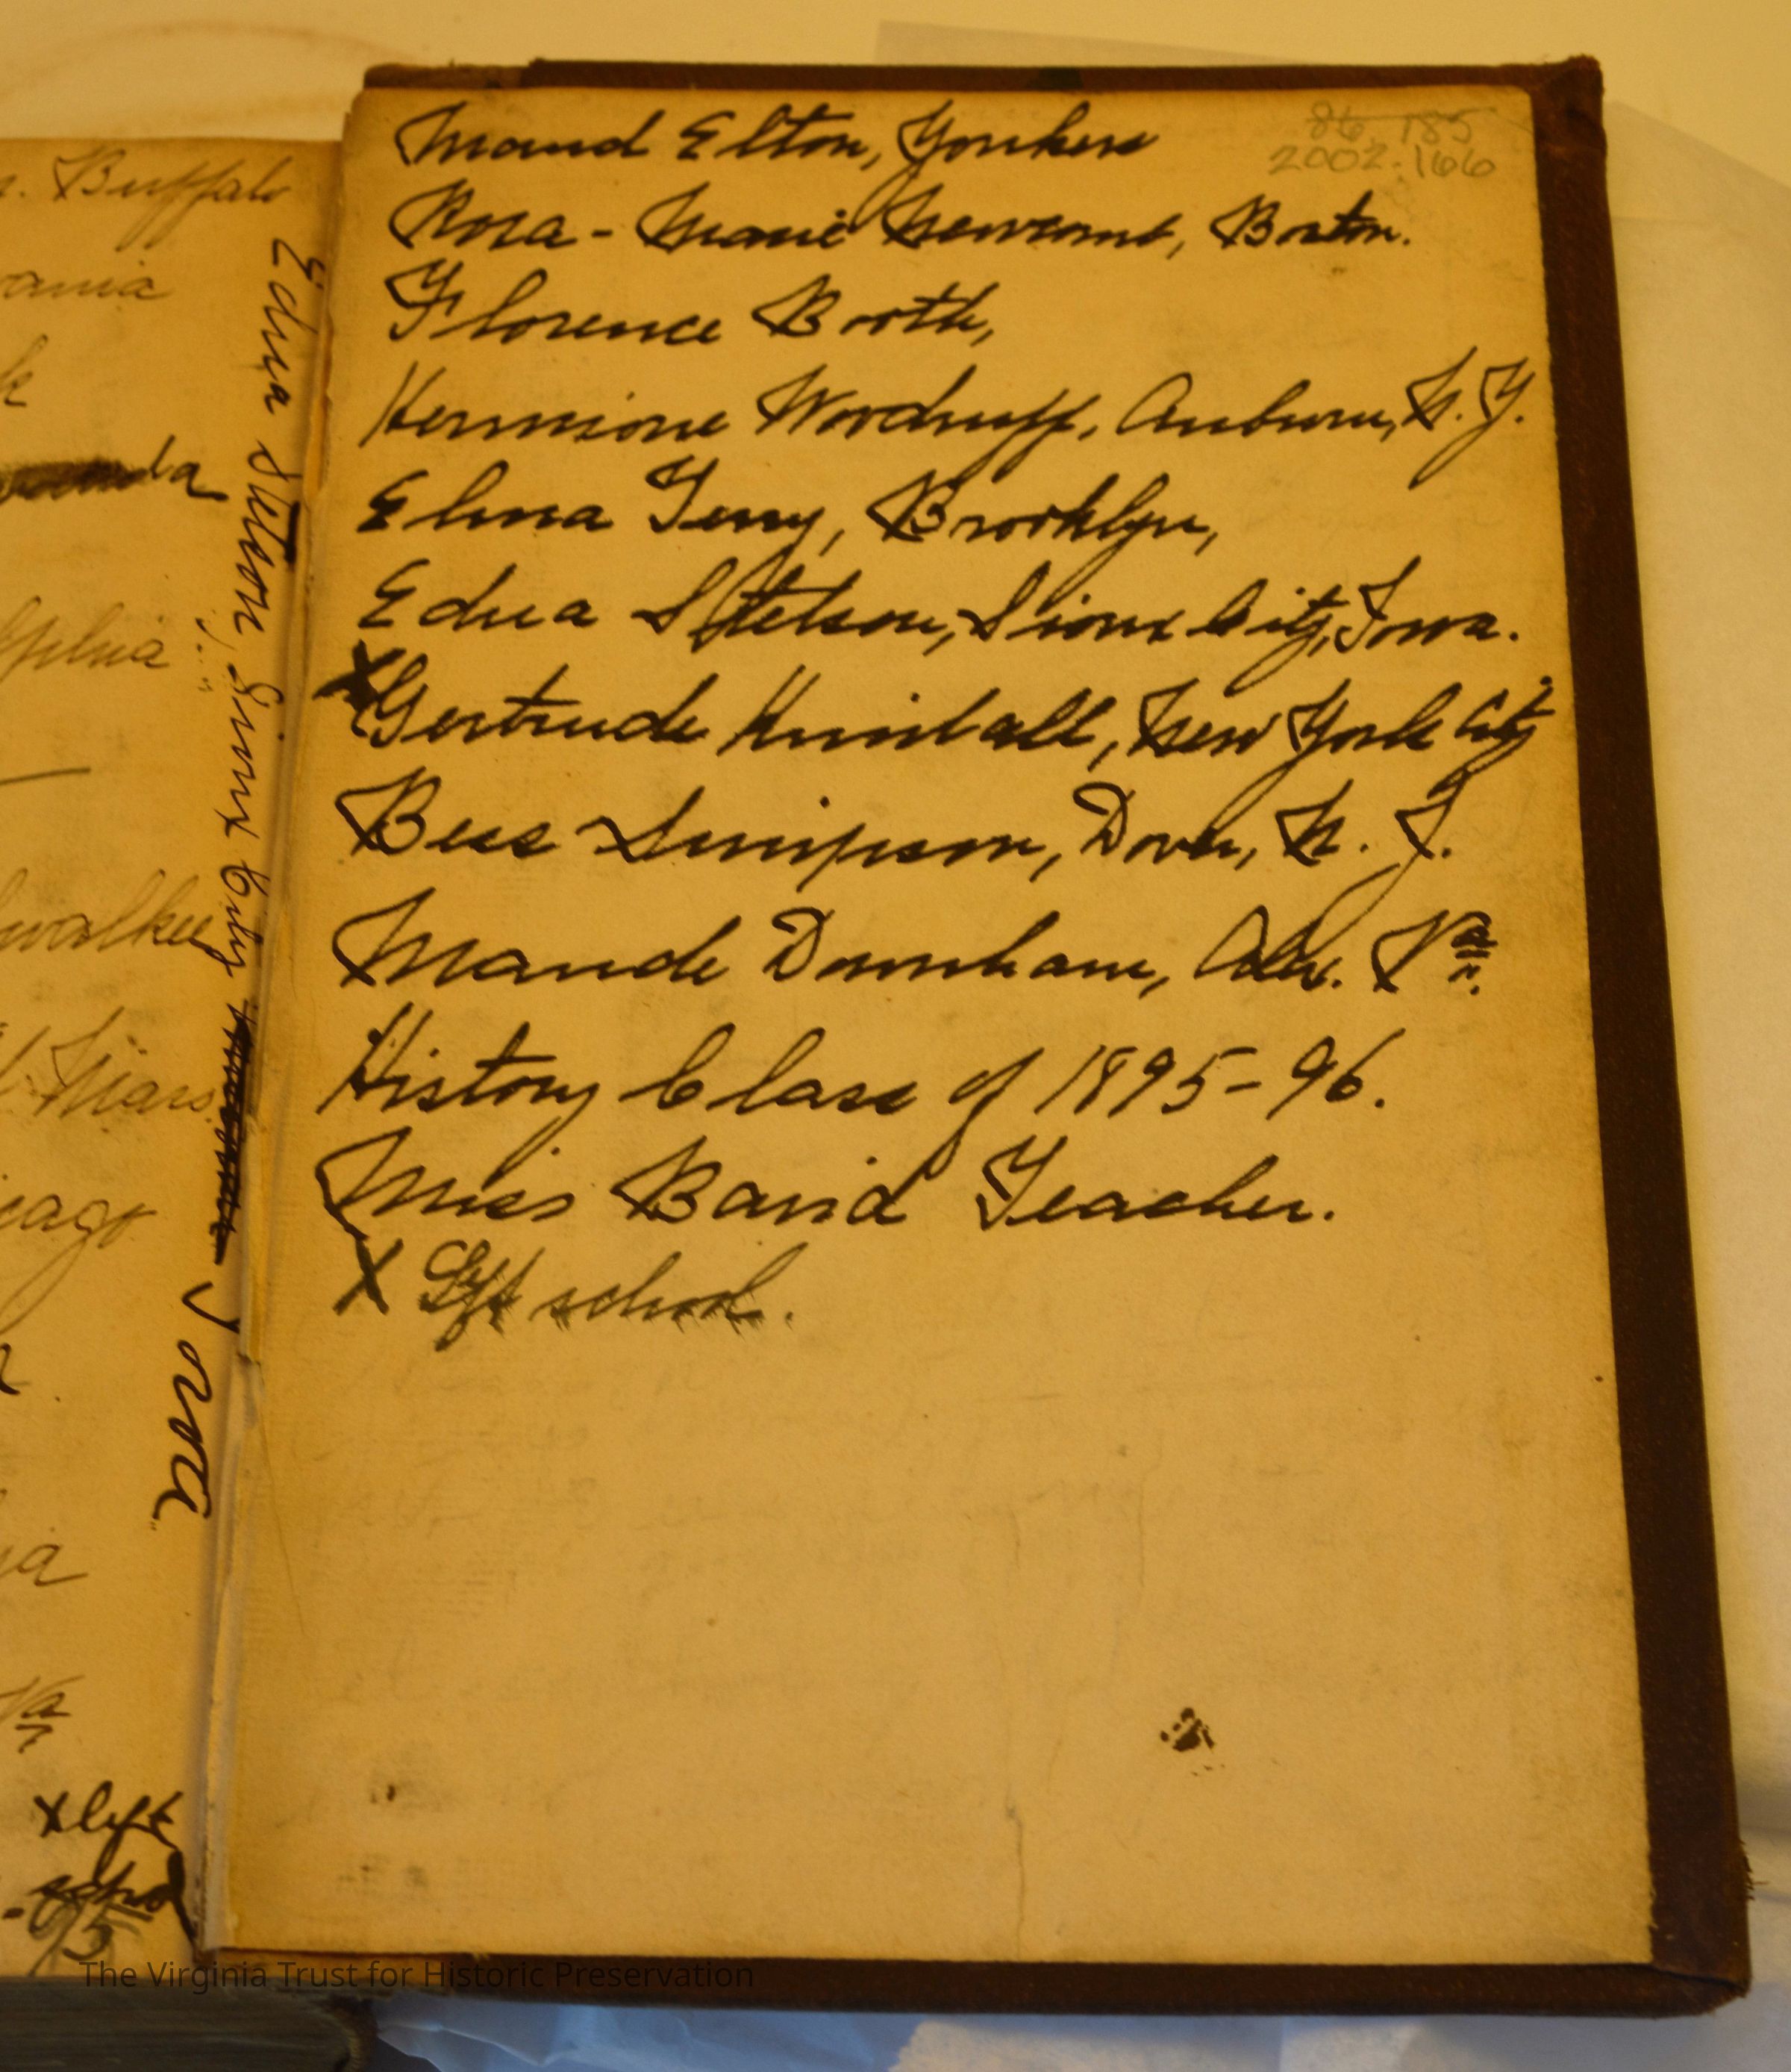 Buffalo
ania
k
lphia
lwalkey
Mars
icago
a
Va
x left
school
-95
Edna Stetson, Sioux City Iowa
86.185
2002.166
Maud Elton, Yonkers
Rosa-Marie Newcomb, Boston.
Florence Booth,
Hermione Woodruff, Auburn, N.Y.
Elma Terry, Brooklyn,
Edna Stetson, Sioux City, Iowa.
X Gertrude Kimball, New York City
Bess Simpson, Dover, N. J.
Maude Dunham, Alex. Va.
History Class of 1895-96.
Miss Baird Teacher.
X Left school.
The Virginia Trust for Historic Preservation